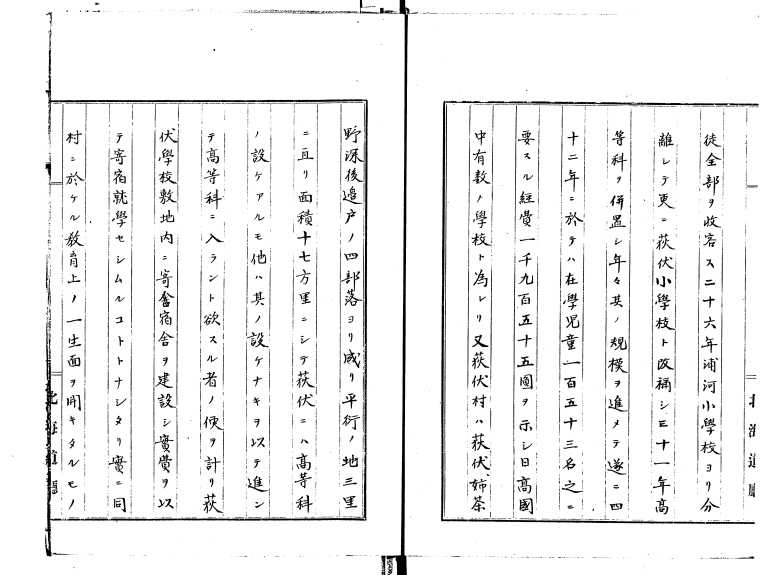 徒全部ヲ收容ス二十六年浦河小學校ヨリ分
離シテ更ニ荻伏小學校ト改稱シ三十一年高
等科ヲ併置シ年々其ノ規模ヲ進メテ遂ニ四
十二年ニ於テハ在學児童一百五十三名之ニ
要スル経費一千九百五十五圓ヲ示シ日高國
中有数ノ學校ト為レリ又荻伏村ハ荻伏、姉茶
北海道廳
野深後邉戸ノ四部落ヨリ成リ平衍ノ地三里
ニ亘リ面積十七方里ニシテ荻伏ニハ高等科
ノ設ケアルモ他ハ其ノ設ケナキヲ以テ進ン
テ高等科ニ入ラント欲スル者ノ便ヲ計リ荻
伏學校敷地内ニ寄宿舎ヲ建設シ實費ヲ以
テ寄宿就學セシムルコトトナシタリ實ニ同
村ニ於ケル教育上ノ一生面ヲ開キタルモノ
北海道廳